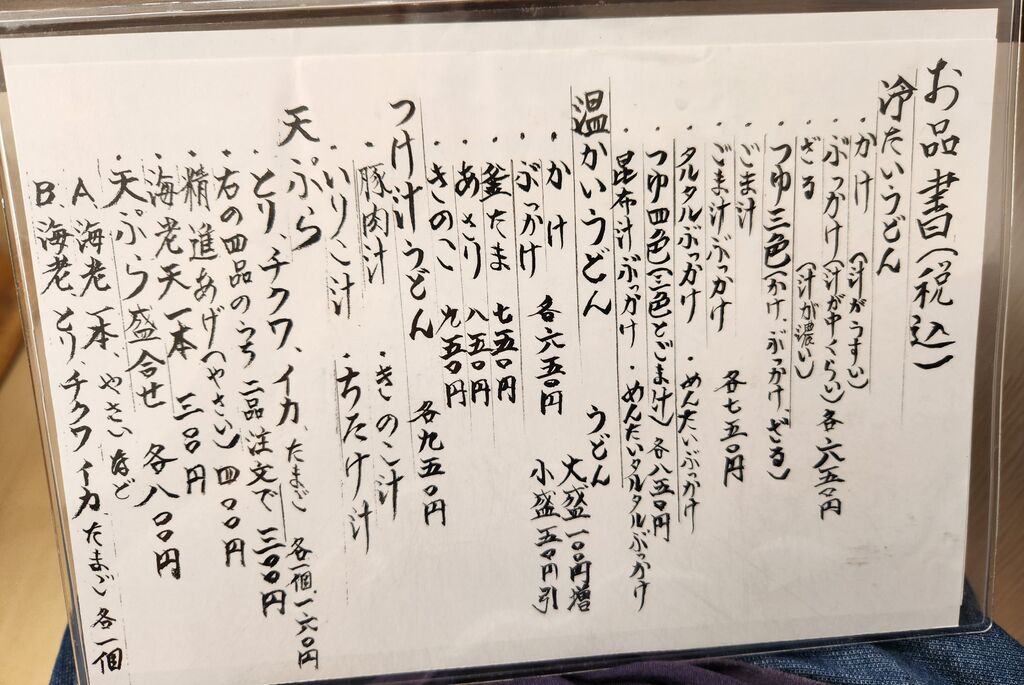 お品書(税込)
冷たいうどん
・かけ(汁がうすい)
・ぶっかけ(汁が中くらい)各六五〇円
・ざる(汁が濃い)
・つゆ三色(かけ、ぶっかけ、ざる)
・ごま汁
・ごま汁ぶっかけ 各七五〇円
・タルタルぶっかけ・めんたいぶっかけ
・つゆ四色(三色とごま汁)各八五〇円
・昆布汁ぶっかけ・めんたいタルタルぶっかけ
温かいうどん うどん
大盛一〇〇円増
小盛五〇円引
・かけ
・ぶっかけ 各六五〇円
・釜たま 七五〇円
・あさり 八五〇円
・きのこ 九五〇円
つけ汁うどん 各九五〇円
・豚肉汁・きのこ汁
・いりこ汁・ちたけ汁
天ぷら
・とり、チクワ、イカ、たまご 各一個、一六〇円
・右の四品のうち二品注文で三〇〇円
・精進あげ(やさい)四〇〇円
・海老天一本 三〇〇円
・天ぷら盛合せ 各八〇〇円
A.海老一本、やさいなど
B.海老、とり、チクワ、イカ、たまご各一個